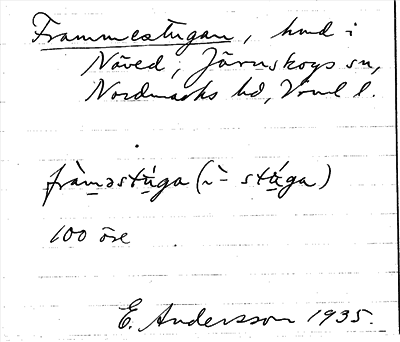 Frammestugan, hmd i
Näved, Järnskogs sn,
Nordmarks hd, Vrml l.
fràmǝstúga (ì- stúga)
100 öre
E. Andersson 1935.